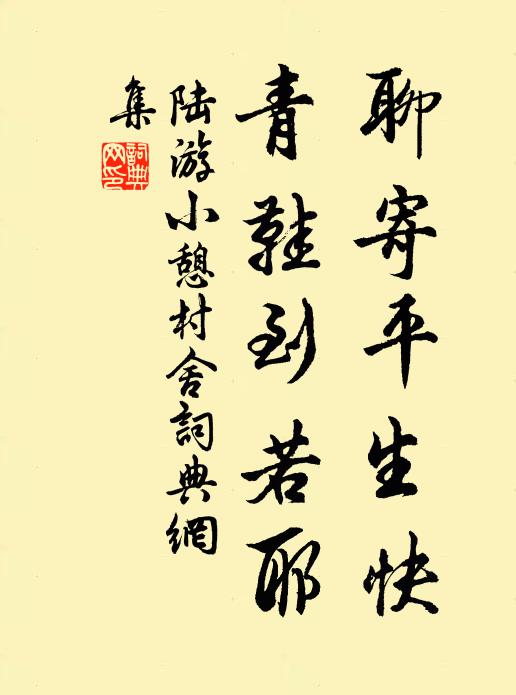 聊寄平生快
青鞋到若耶
陆游小憩村舍詞典網
集
詞典
网印